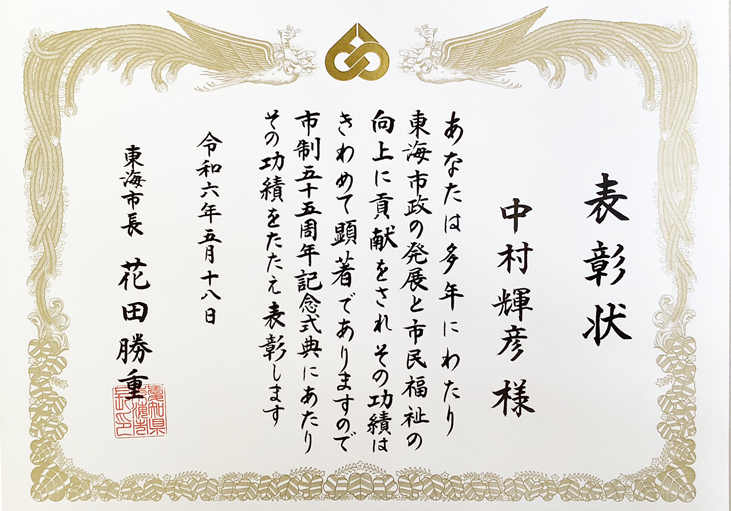 表彰状
中村輝彦 様
あなたは多年にわたり
東海市政の発展と市民福祉の
向上に貢献をされその功績は
きわめて顕著でありますので
市制五十五周年記念式典にあたり
その功績をたたえ表彰します
令和六年五月十八日
東海市長 花田勝重
愛知県
東海市
長印